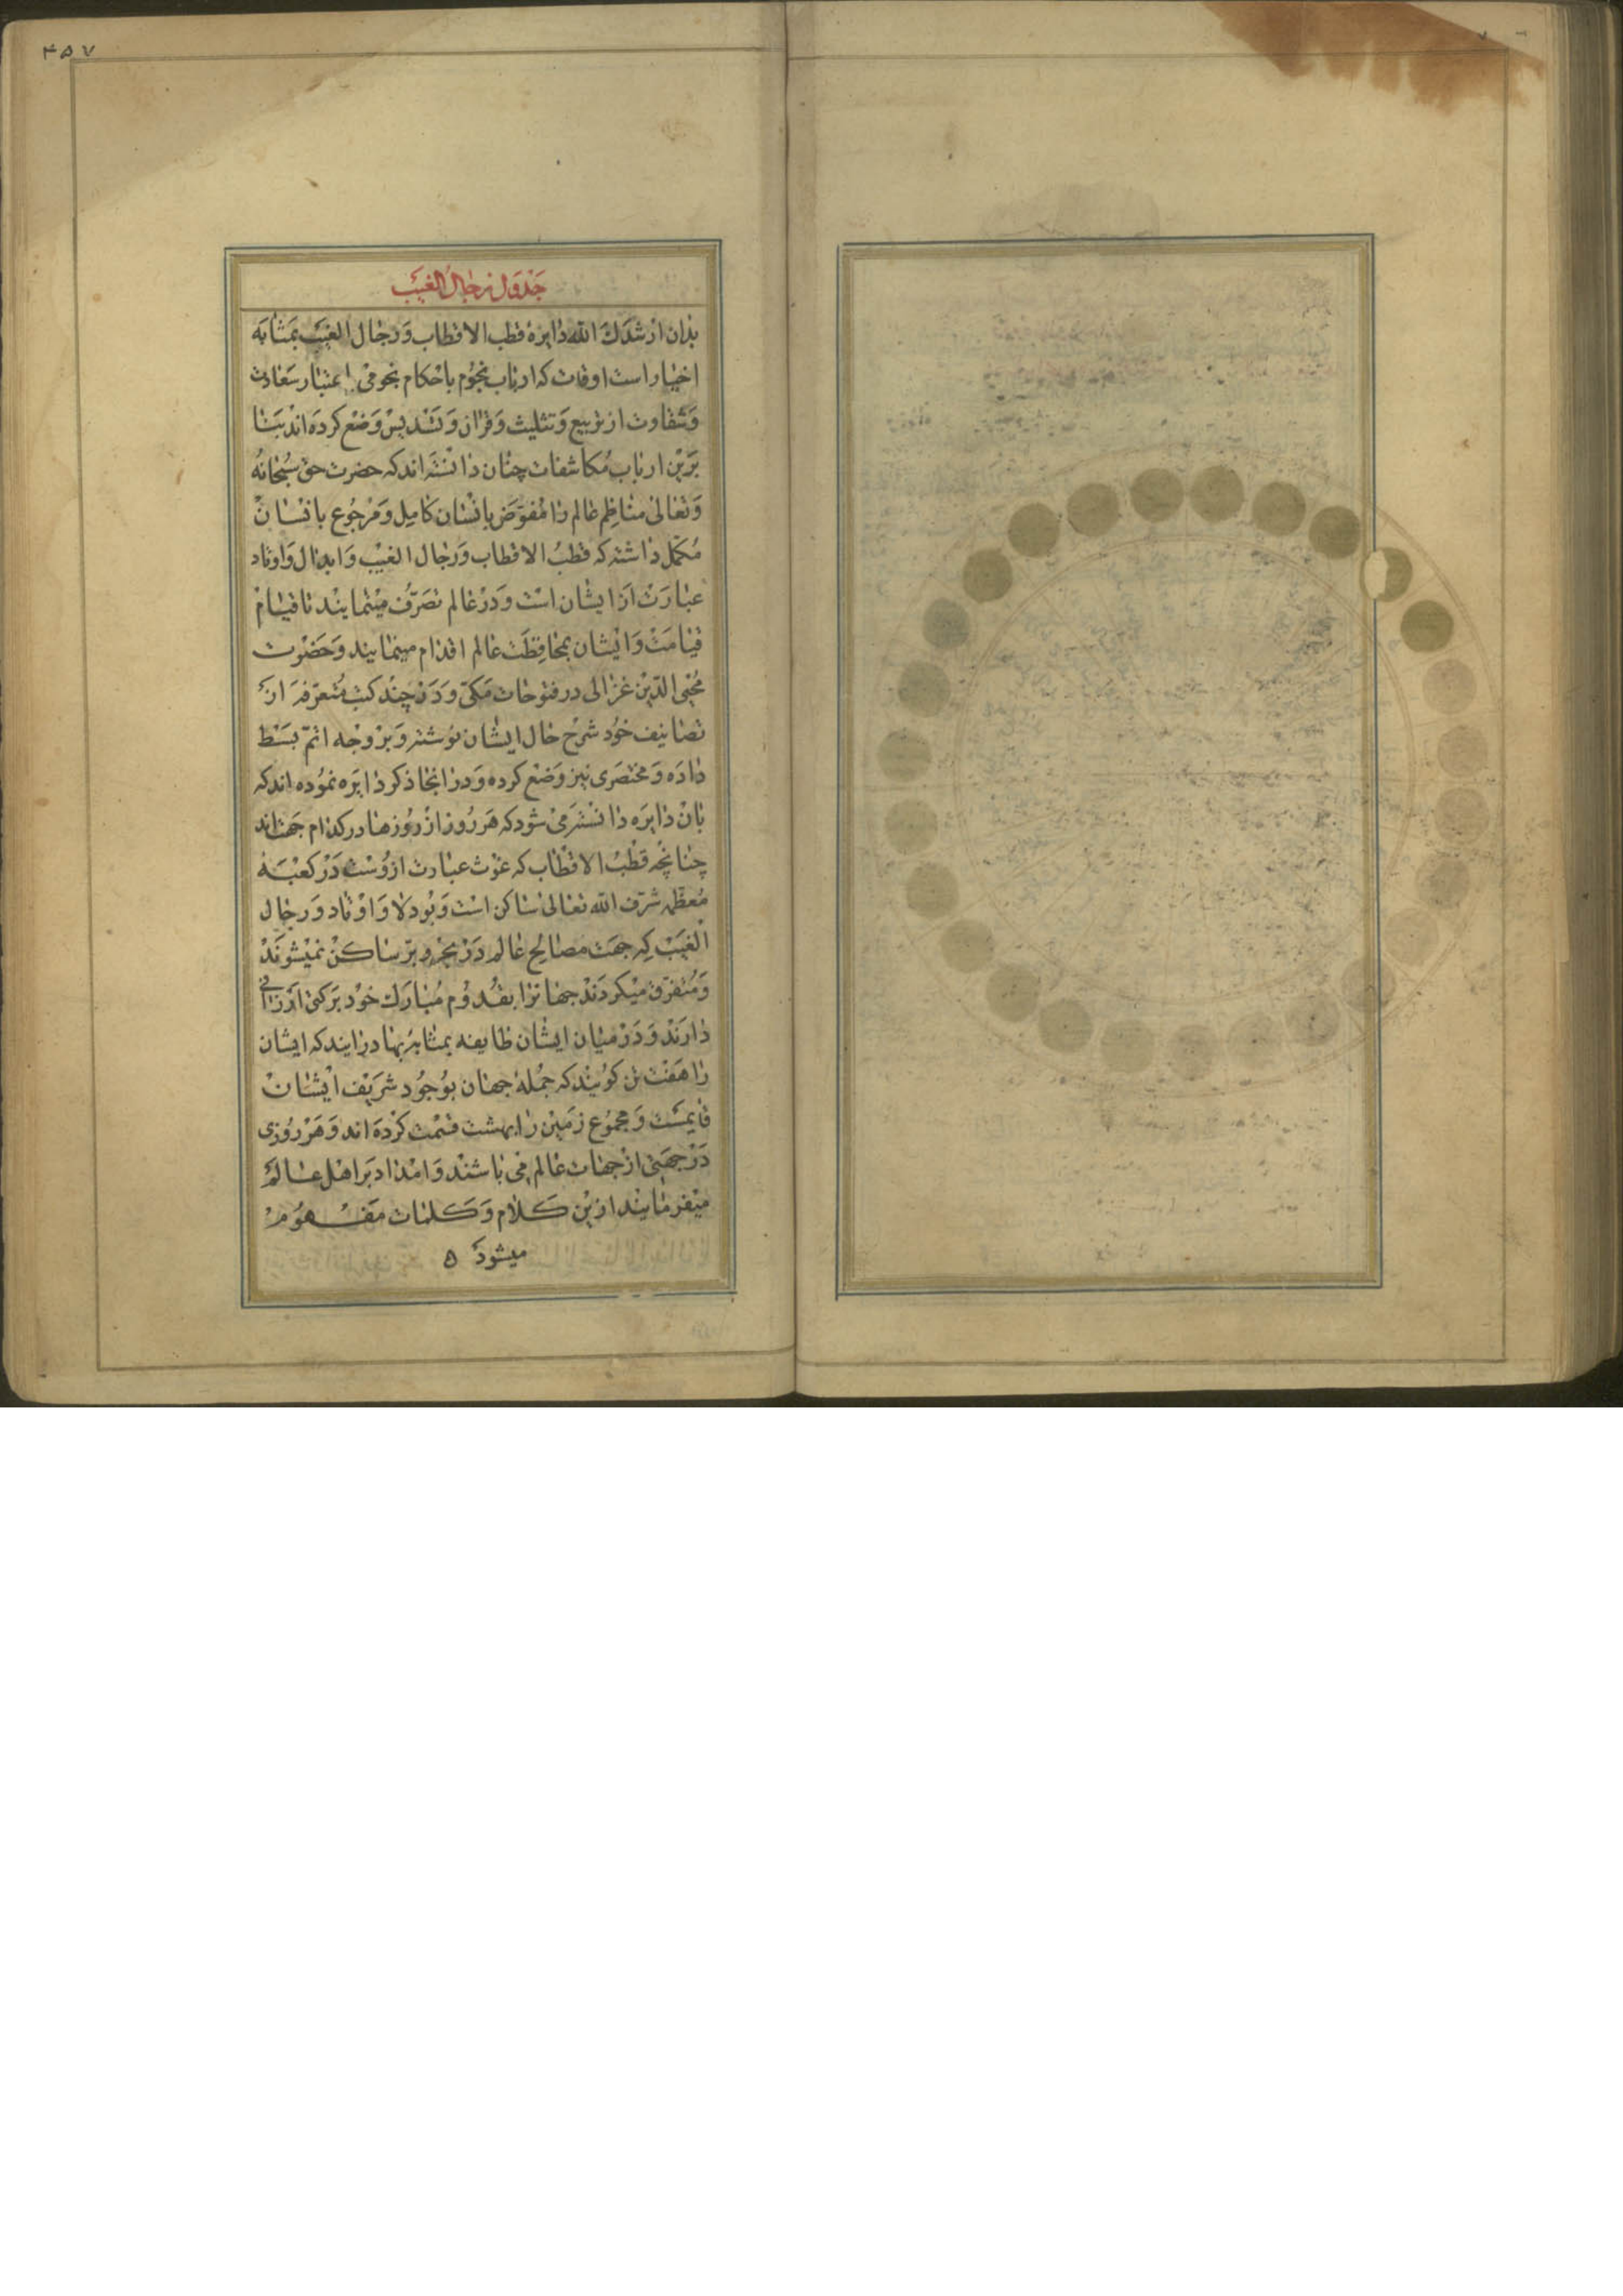 ۴۵۷
جدول رجال الغیب
بدان ارشدک الله دایره قطب الاقطاب و رجال الغیب بمثابه
اختیار است اوقات که ارباب نجوم باحکام نجومی اعتبار سعادت
و شقاوت از تربیع و تثلیث و قران و تسدیس وضع کرده اند بنا
برین ارباب مکاشفات چنان دانسته اند که حضرت حق سبحانه
و تعالی مناظم عالم را مفوض بانسان کامل و مرجوع بانسان
مکمل داشته که قطب الاقطاب و رجال الغیب و ابدال و اوتاد
عبارت از ایشان است و در عالم تصرف مینمایند تا قیام
قیامت و ایشان بمحافظت عالم اقدام مینمایند و حضرت
محیی الدین غزالی در فتوحات مکی و در چند کتب متفرقه از
تصانیف خود شرح حال ایشان نوشته و بر وجه اتم بسط
داده و مختصری نیز وضع کرده و در انجا ذکر دایره نموده اند که
بان دایره دانسته می شود که هر روز از روزها در کدام جهت اند
چنانچه قطب الاقطاب که غوث عبارت ازوست در کعبه
معظمه شرف الله تعالی ساکن است و بودلا و اوتاد و رجال
الغیب که جهت مصالح عالم در بحر و بر ساکن نمیشوند
و متفرق میکردند جهانرا بقدوم مبارک خود برکتی ارزانی
دارند و در میان ایشان طایفه بمثابه بهادرانند که ایشان
را هفت تن کویند که جمله جهان بوجود شریف ایشان
قایمست و مجموع زمین را بهشت قسمت کرده اند و هر روزی
در جهتی از جهات عالم می باشند و امداد بر اهل عالم
میفرمایند ازین کلام و کلمات مفهوم
میشود ۵